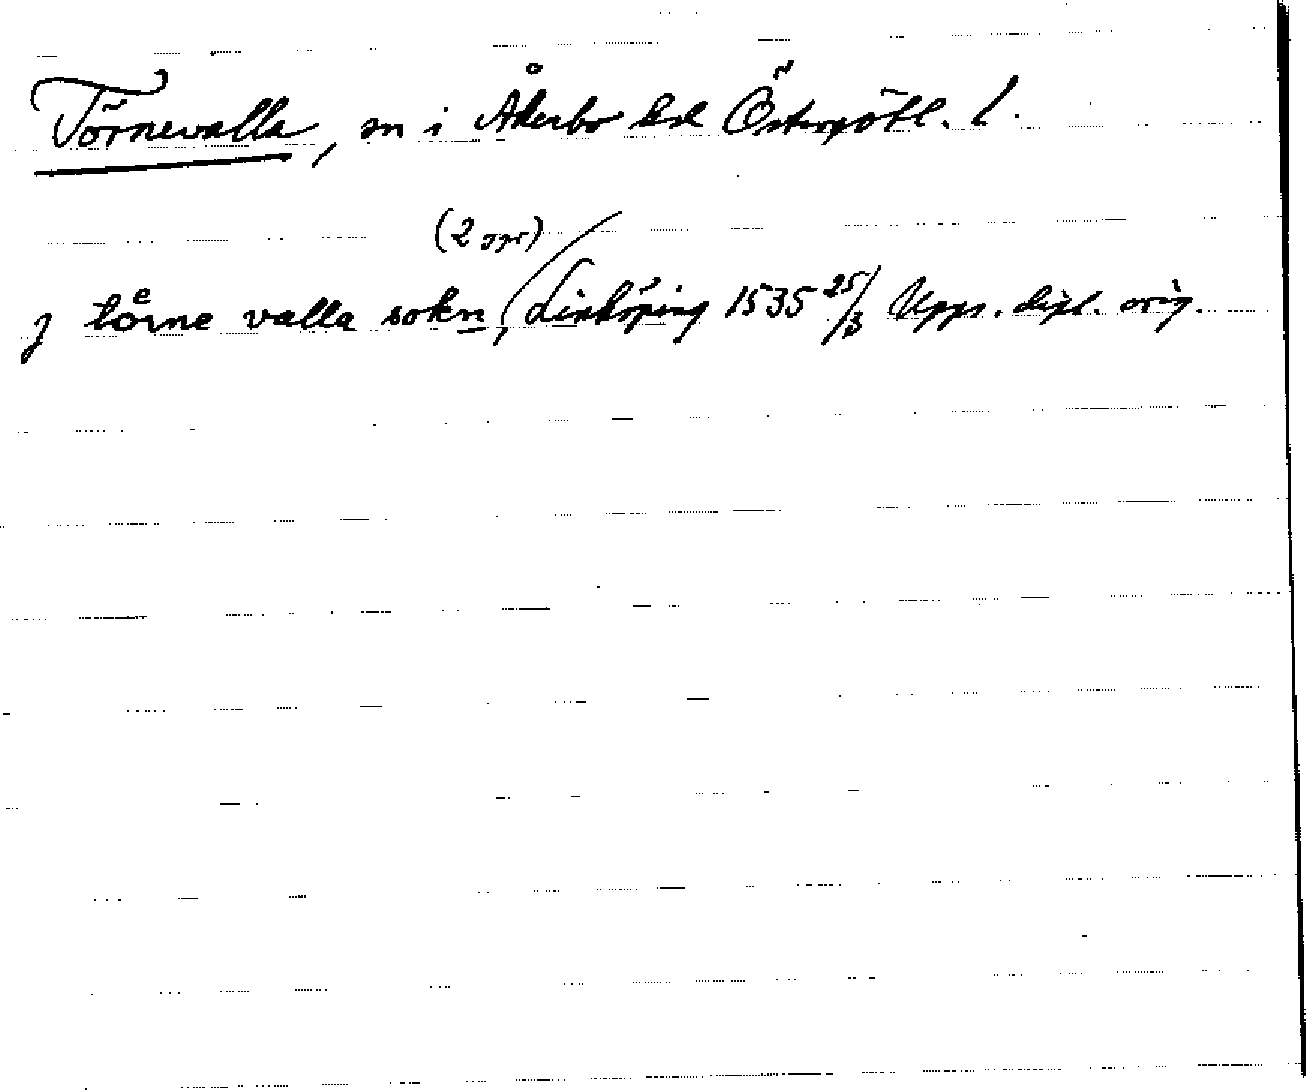 Törnevalla, sn i Åkerbo hd Östergötl. l.
(2 ggr)
j toͤrne valla sokn, Linköping 1535 25/3 Upps. dipl. orig.